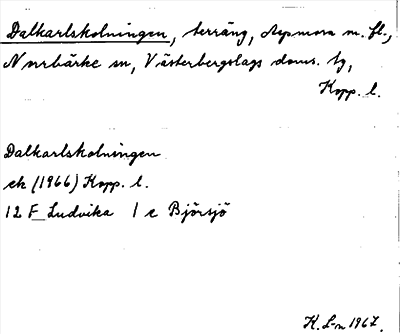 Dalkarlskolningen, terräng, Aspmora m. fl.,
Norrbärke sn, Västerbergslags doms. tg,
Kopp. l.
Dalkarlskolningen
ek (1966) Kopp. l.
12 F Ludvika 1 e Björsjö
K. L-n 1967.